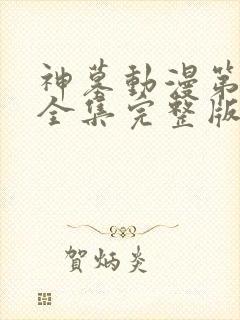 神墓動漫第
全集完整版
賀炳炎